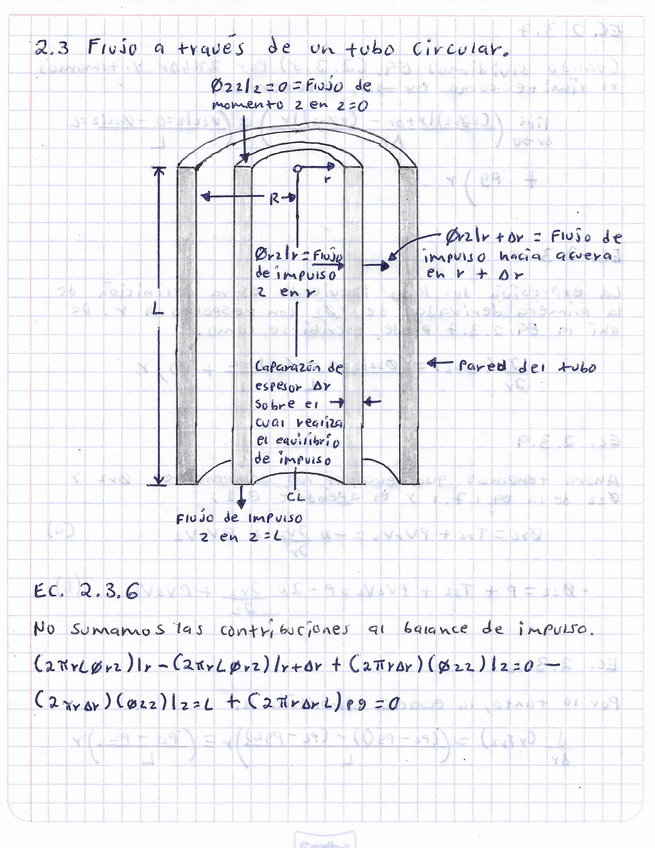 2.3 Flujo a través de un tubo circular.
Øzz|z=0 = Flujo de
momento z en z=0
r
R
Ørz|r = Flujo
de impulso
z en r
Ørz|r + Δr = Flujo de
impulso hacia afuera
en r + Δr
L
Caparazón de
espesor Δr
sobre el
cual realiza
el equilibrio
de impulso
Pared del tubo
CL
Flujo de impulso
z en z=L
EC. 2.3.6
No sumamos las contribuciones al balance de impulso.
(2πrLØrz)|r - (2πrLØrz)|r+Δr + (2πrΔr)(Øzz)|z=0 —
(2πrΔr)(Øzz)|z=L + (2πrΔrL)ρg=0